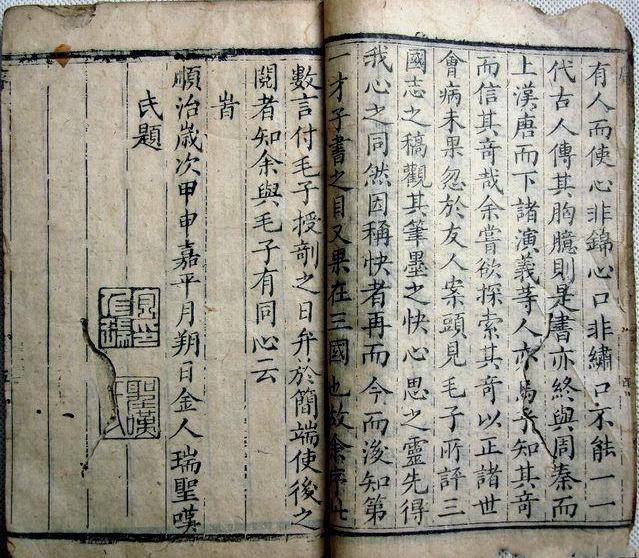 有人而使心非錦心口非繡口不能一一
代古人傳其胸臆則是書亦終與周秦而
上漢唐而下諸演義等人亦烏乎知其奇
而信其奇哉余嘗欲探索其奇以正諸世
會病未果忽於友人案頭見毛子所評三
國志之稿觀其筆墨之快心思之靈先得
我心之同然因稱快者再而今而後知第
一才子書之目又果在三國也故余序此
數言付毛子授剞之日弁於簡端使後之
閱者知余與毛子有同心云
旹
順治歲次甲申嘉平月朔日金人瑞聖嘆
氏題
聖嘆